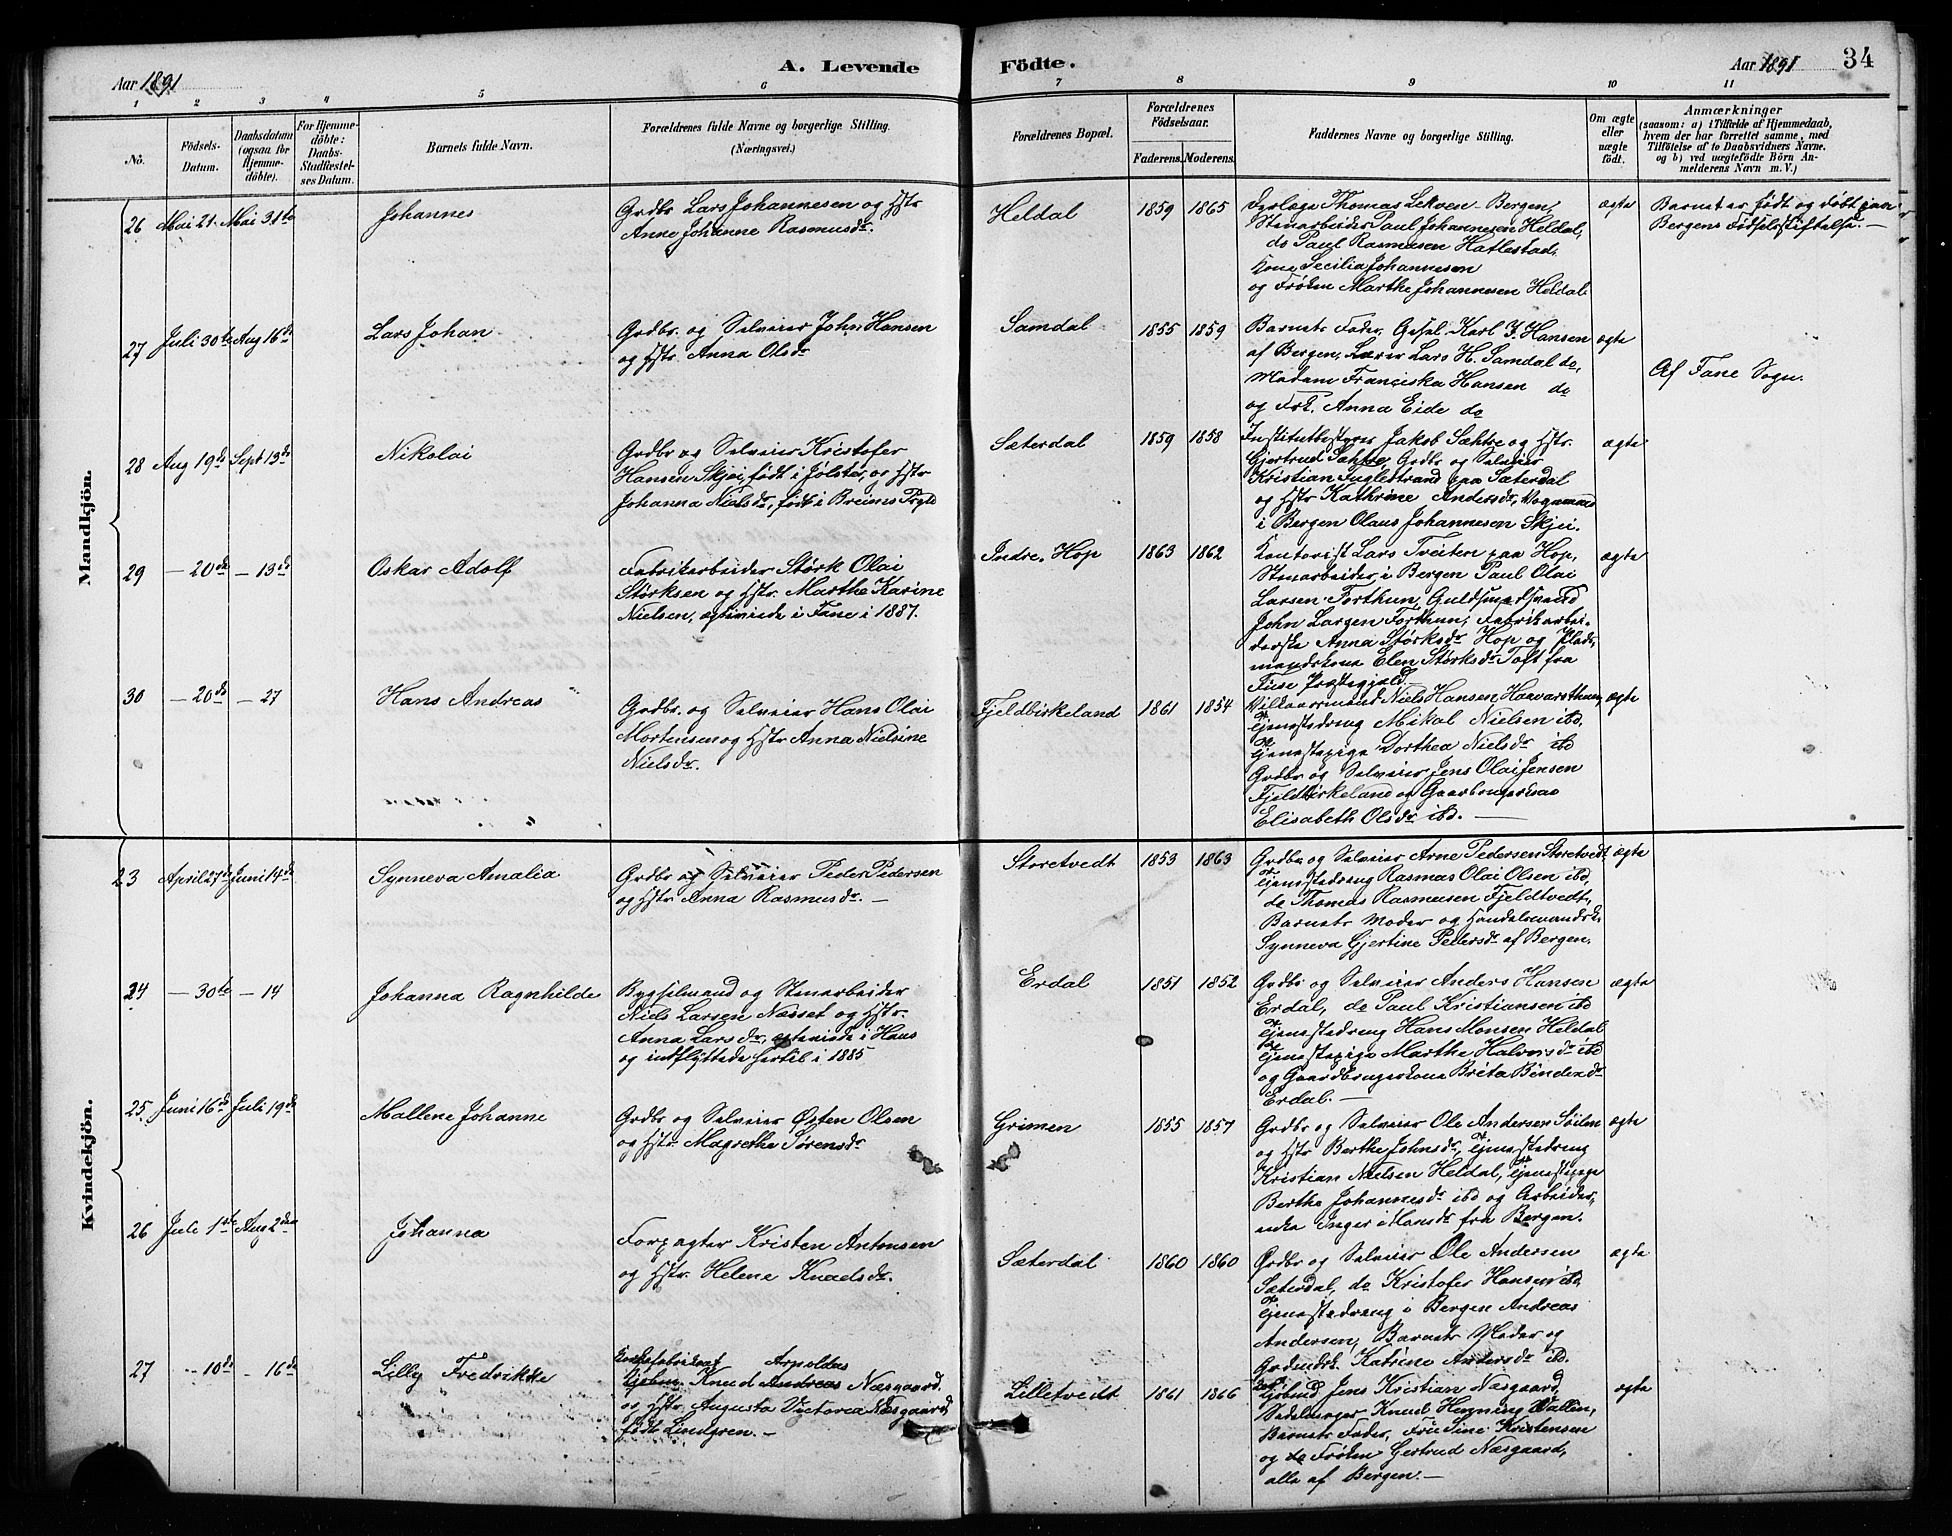 Aar 1891
A. Levende
Födte.
Aar 1891
34
1 2 3 4 5 6 7 8 9 10 11
No.
Födsels-
Datum.
Daabsdatum
(ogsaa for
Hjemme-
döbte).
For Hjemme-
döbte:
Daabs-
Stadfæstel-
ses Datum.
Barnets fulde Navn.
Forældrenes fulde Navne og borgerlige Stilling.
(Næringsvei.)
Forældrenes Bopæl.
Forældrenes
Födselsaar.
Faderens. Moderens.
Faddernes Navne og borgerlige Stilling.
Om ægte
eller
uægte
födt.
Anmærkninger
(saasom: a) i Tilfælde af Hjemmedaab,
hvem der har forrettet samme, med
Tilföielse af to Daabsvidners Navne.
og b) ved uægtefödte Börn An-
melderens Navn m. V.)
Mandkjön.
26 Mai 21. Mai 31te
Johannes
Grdbr Lars Johannesen og Hstr
Anne Johanne Rasmusdr.
Heldal
1859 1865
Thomas Lekven - Bergen,
Stenarbeider Paul Johannesen Heldal,
do Paul Rasmusen Hatlestad,
Kone Secilia Johannesen
og Frøken Marthe Johannesen Heldal
ægte
Barnet er født og døbt paa
Bergens Fødselsstiftelse. —
27 Juli 30te Aug 16de
Lars Johan
Grdbr. og Selveier John Hansen
og Hstr Anna Olsdr
Samdal
1855 1859
Barnets Fader, Gesel. Karl J. Hansen
af Bergen, Lærer Lars H. Samdal do,
Madam Franciska Hansen do
og Frk. Anna Eide do
ægte
Af Fane Sogn.
28 Aug 19de Sept 13de
Nikolai
Grdbr og Selveier Kristofer
Hansen Skjei, født i Jølster, og Hstr
Johanna Nielsdr, født i Breims Prgld
Sæterdal
1859 1858
Institutbestyrer Jakob Sæhtre og Hstr.
Gjertrud Sæhtre, Grdbr og Selveier
Kristian Fuglestrand paa Sæterdal
og Hstr Kathrine Andersdr, Vognmand
i Bergen Olaus Johannesen Skjei.
ægte
29 — 20de — 13de
Oskar Adolf
Fabrikarbeider Størk Olai
Størksen og Hstr. Marthe Karine
Nielsen, egteviede i Fane i 1887.
Indre. Hop
1863 1862
Kontorist Lars Tveiten paa Hop,
Stenarbeider i Bergen Paul Olai
Larsen Forthun, Guldsmedsvend
John Largen Forthun, Fabrikarbei-
derske Anna Størksdr Hop og Plads-
mandskone Elen Størksdr Toft fra
Fuse Præstegjæld. —
ægte
30 — 20de — 27
Hans Andreas
Grdbr. og Selveier Hans Olai
Mortensen og Hstr Anna Nielsine
Nielsdr.
Fjeldbirkeland
1861 1854
Vilkaarmand Niels Hansen Haavarsthun,
Tjenestedreng Mikal Nielsen ibd,
Tjenestepige Dorthea Nielsdr ibd
Grdbr og Selveier Jens Olai Jensen
Fjeldbirkeland og
Elisabeth Olsdr ibd. —
ægte
Kvindekjön.
23 April 27de Juni 14de
Synneva Amalia
Grdbr og Selveier Peder Pedersen
og Hstr Anna Rasmusdr. —
Storetvedt
1853 1863
Grdbr og Selveier Arne Pedersen Storetvedt
Tjenestedreng Rasmus Olai Olsen ibd,
do Thomas Rasmusen Fjeldtvedt,
Barnets Moder og Handelsmandsk.
Synneva Gjertine Pedersdr af Bergen.
ægte
24 — 30te — 14
Johanna Ragnhilde
Bygselmand og Stenarbeider
Niels Larsen Næsset og Hstr.
Anna Larsdr, egteviede i Haus
og indflyttede hertil i 1885
Erdal
1851 1852
Grdbr og Selveier Anders Hansen
Erdal, do Paul Kristiansen ibd
Tjenestedreng Hans Monsen Heldal
Tjenestepige Marthe Halvorsdr ibd
og Gaardbrugerkone Brita Bendixdr
Erdal. —
ægte
25 Juni 16de Juli 19de
Mallene Johanne
Grdbr og Selveier Østen Olsen
og Hstr. Magrethe Sørensdr
Grimen
1855 1857
Grdbr og Selveier Ole Andersen Søilen
og Hstr Berthe Johnsdr, Tjenestedreng
Kristian Nielsen Heldal, Tjenestepige
Berthe Johannesdr ibd og Arbeider-
enke Inger Hansdr fra Bergen.
ægte
26 Juli 1ste Aug 2den
Johanna
Forpagter Kristen Antonsen
og Hstr. Helene Knudsdr.
Sæterdal
1860 1860
Grdbr og Selveier Ole Andersen
Sæterdal, do Kristofer Hansen ibd,
Tjenestedreng i Bergen Andreas
Andersen, Barnets Moder og
Grdmdsk. Katrine Andersdr ibd.
ægte
27 — 10de — 16de
Lilly Fredrikke
Arnoldus
Knud Andreas Næsgaard
og Hstr. Augusta Victoria Næsgaard,
født Lindgren. —
Lilletvedt
1861 1866
Jens Kristian Næsgaard,
Sadelmager Knud Henning Wallin,
Barnets Fader, Frú Sine Kristensen
og do Frøken Gertrud Næsgaard,
alle af Bergen. —
ægte